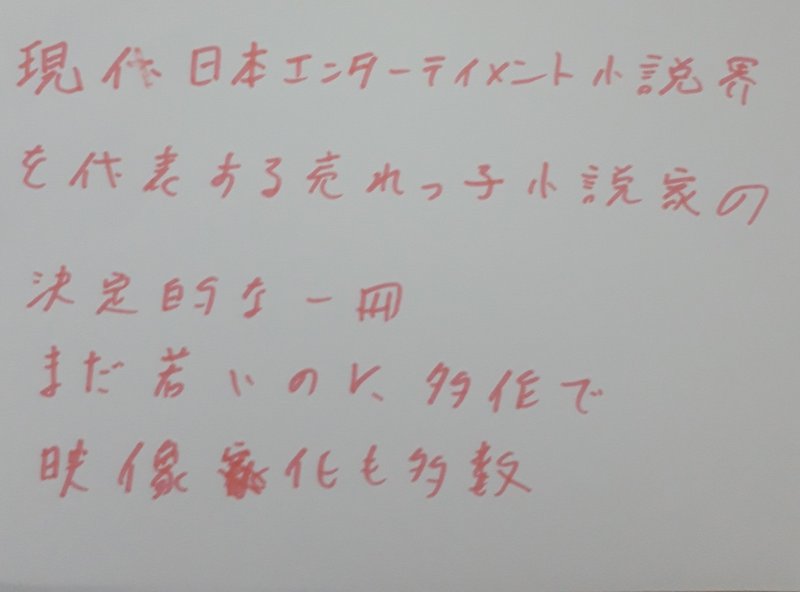 現代日本エンターティメント小説界
を代表する売れっ子小説家の
決定的な一冊
まだ若いのに、多作で
映像化も多数